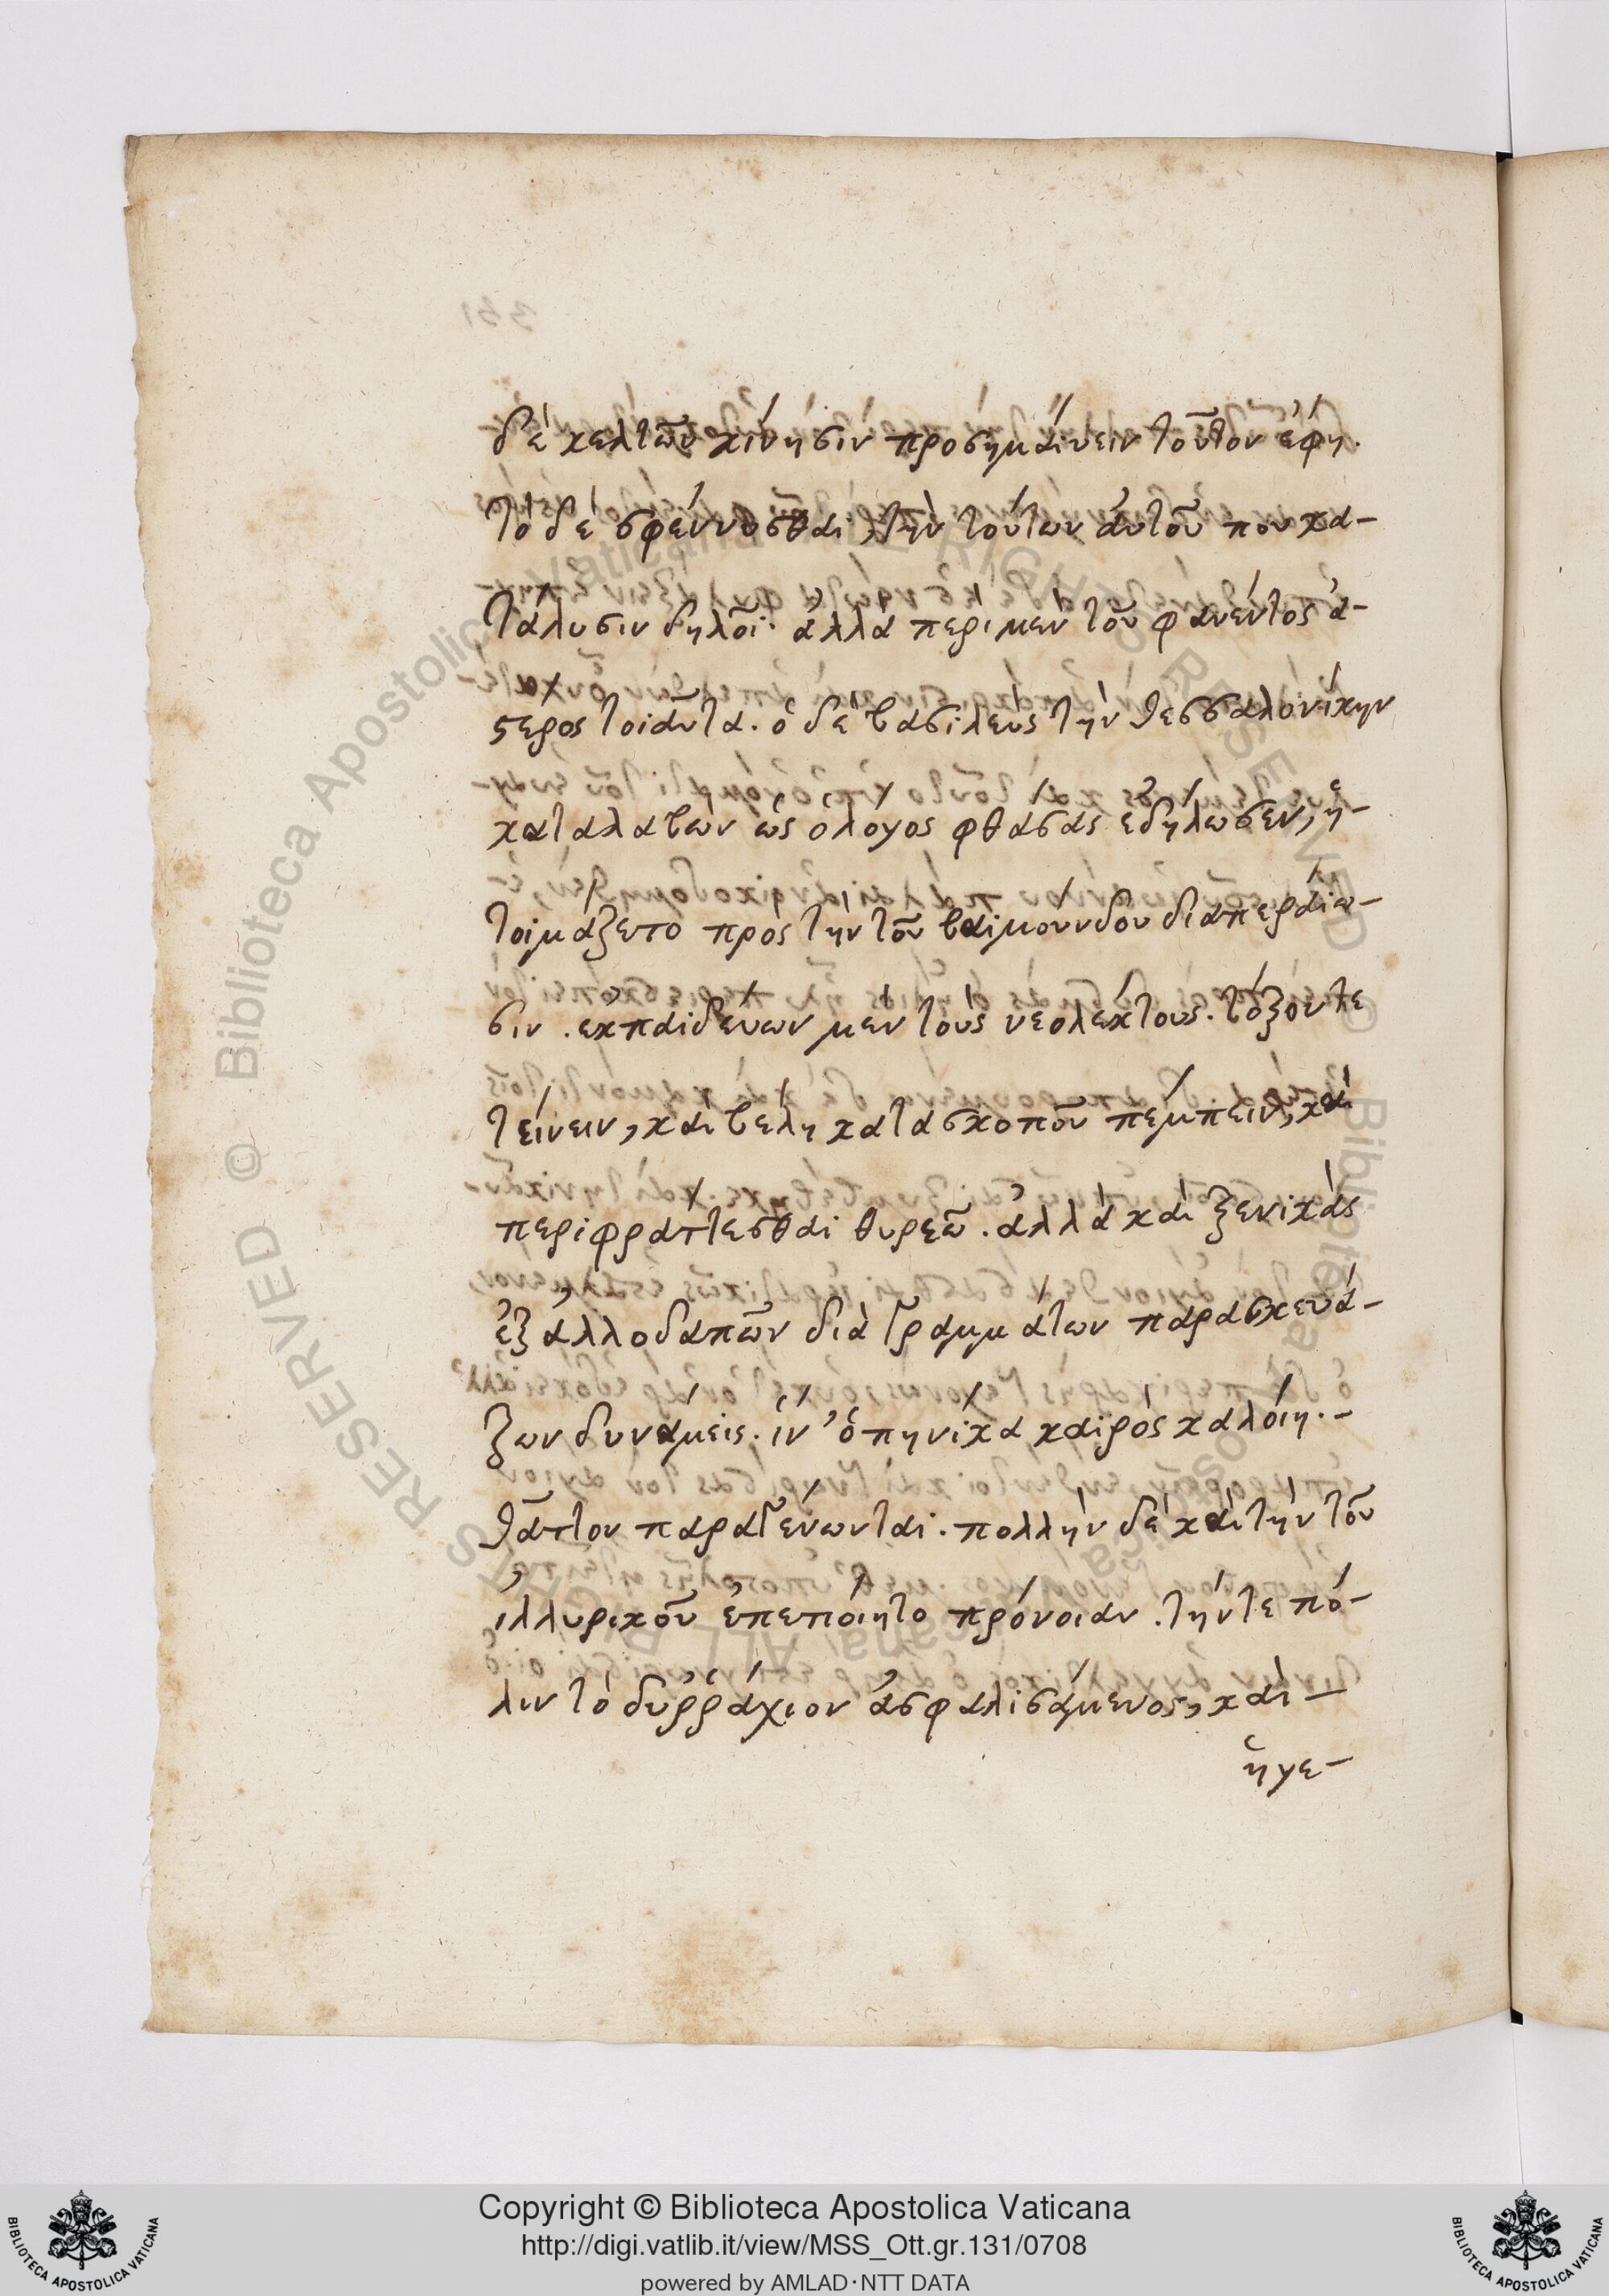 δὲ κελτῶν κίνησιν προσημαίνειν τοῦτον ἔφη.
τὸ δὲ σφέννυσθαι, τὴν τούτων αὐτοῦ που κα-
τάλυσιν δηλοῖ. ἀλλὰ περι μὲν τοῦ φανέντος ἀ-
στερος τοιαῦτα. ὁ δὲ βασιλεὺς τὴν θεσσαλονίκην
καταλαβὼν ὡς ὁ λόγος φθάσας ἐδήλωσεν, ἡ-
τοιμάζετο πρὸς τὴν τοῦ βαιμούνδου διαπεραίω-
σιν. ἐκπαιδεύων μὲν τοὺς νεολέκτους. τόξον τε
τείνειν, καὶ βέλη κατα σκοποῦ πέμπειν, καὶ
περιφράττεσθαι θυρεῶ. ἀλλὰ καὶ ξενικὰς
ἐξ ἀλλοδαπῶν διὰ γραμμάτων παρασκευά-
ζων δυνάμεις. ἵν' ὁπηνίκα καιρὸς καλοίη.-
θᾶττον παραγένωνται. πολλὴν δὲ καὶ τὴν τοῦ
ἰλλυρικοῦ ἐπεποίητο πρόνοιαν. τήν τε πό-
λιν τὸ δυῤῥάχιον ἀσφαλισάμενος, καὶ -
ἡγε-
Copyright © Biblioteca Apostolica Vaticana
http://digi.vatlib.it/view/MSS_Ott.gr.131/0708
powered by AMLAD·NTT DATA